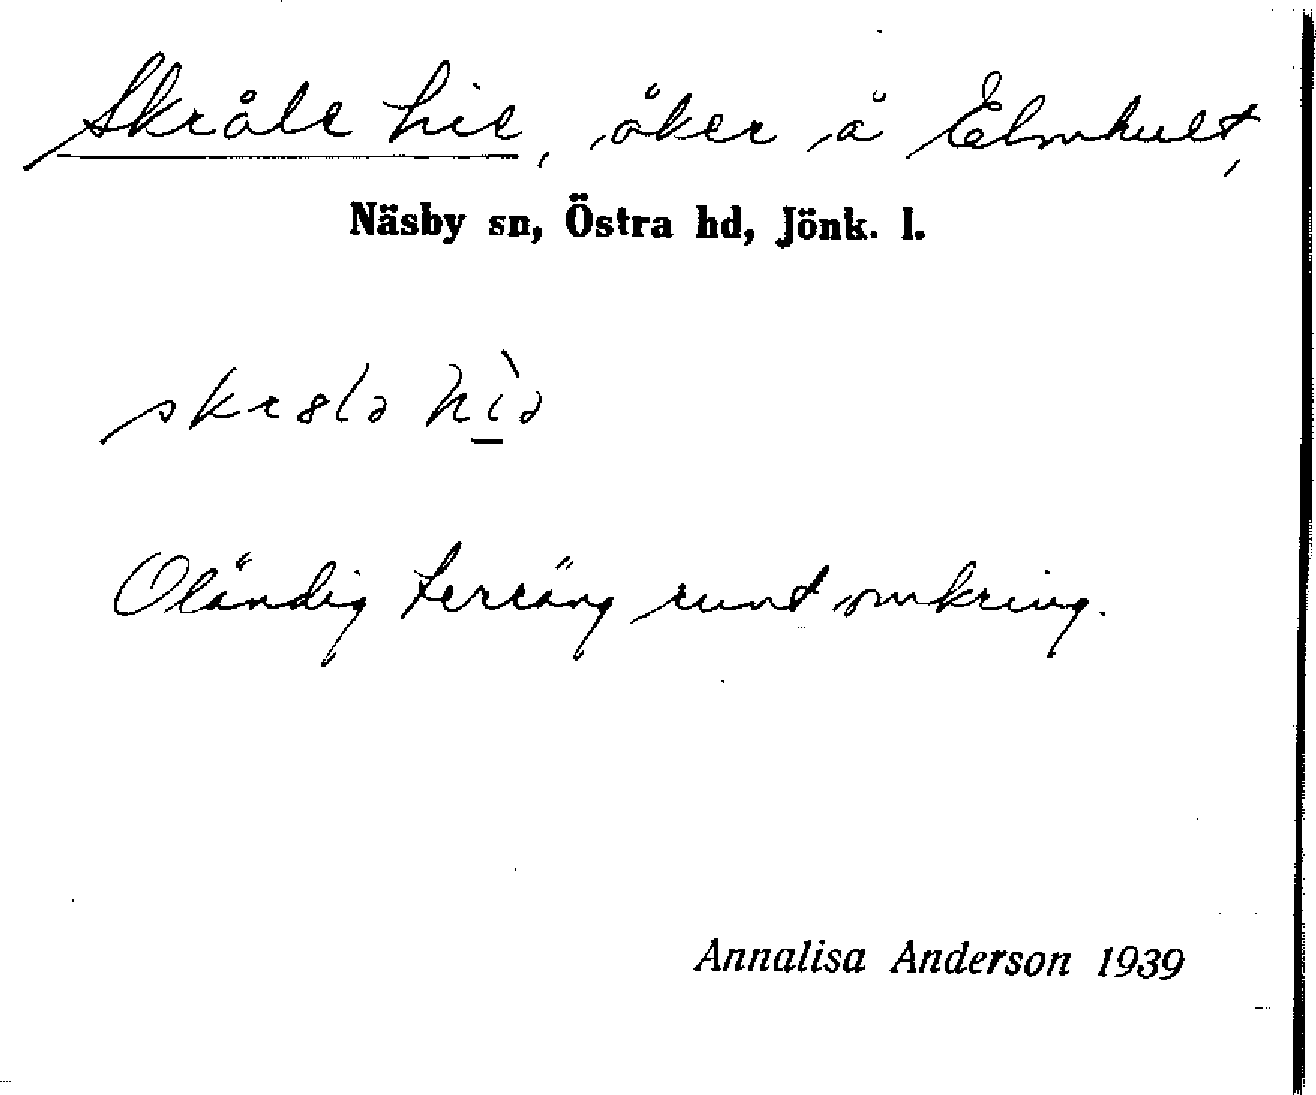 Skråle hie, åker å Elmhult,
Näsby sn, Östra hd, Jönk. l.
Oländig terräng runt omkring.
Annalisa Anderson 1939